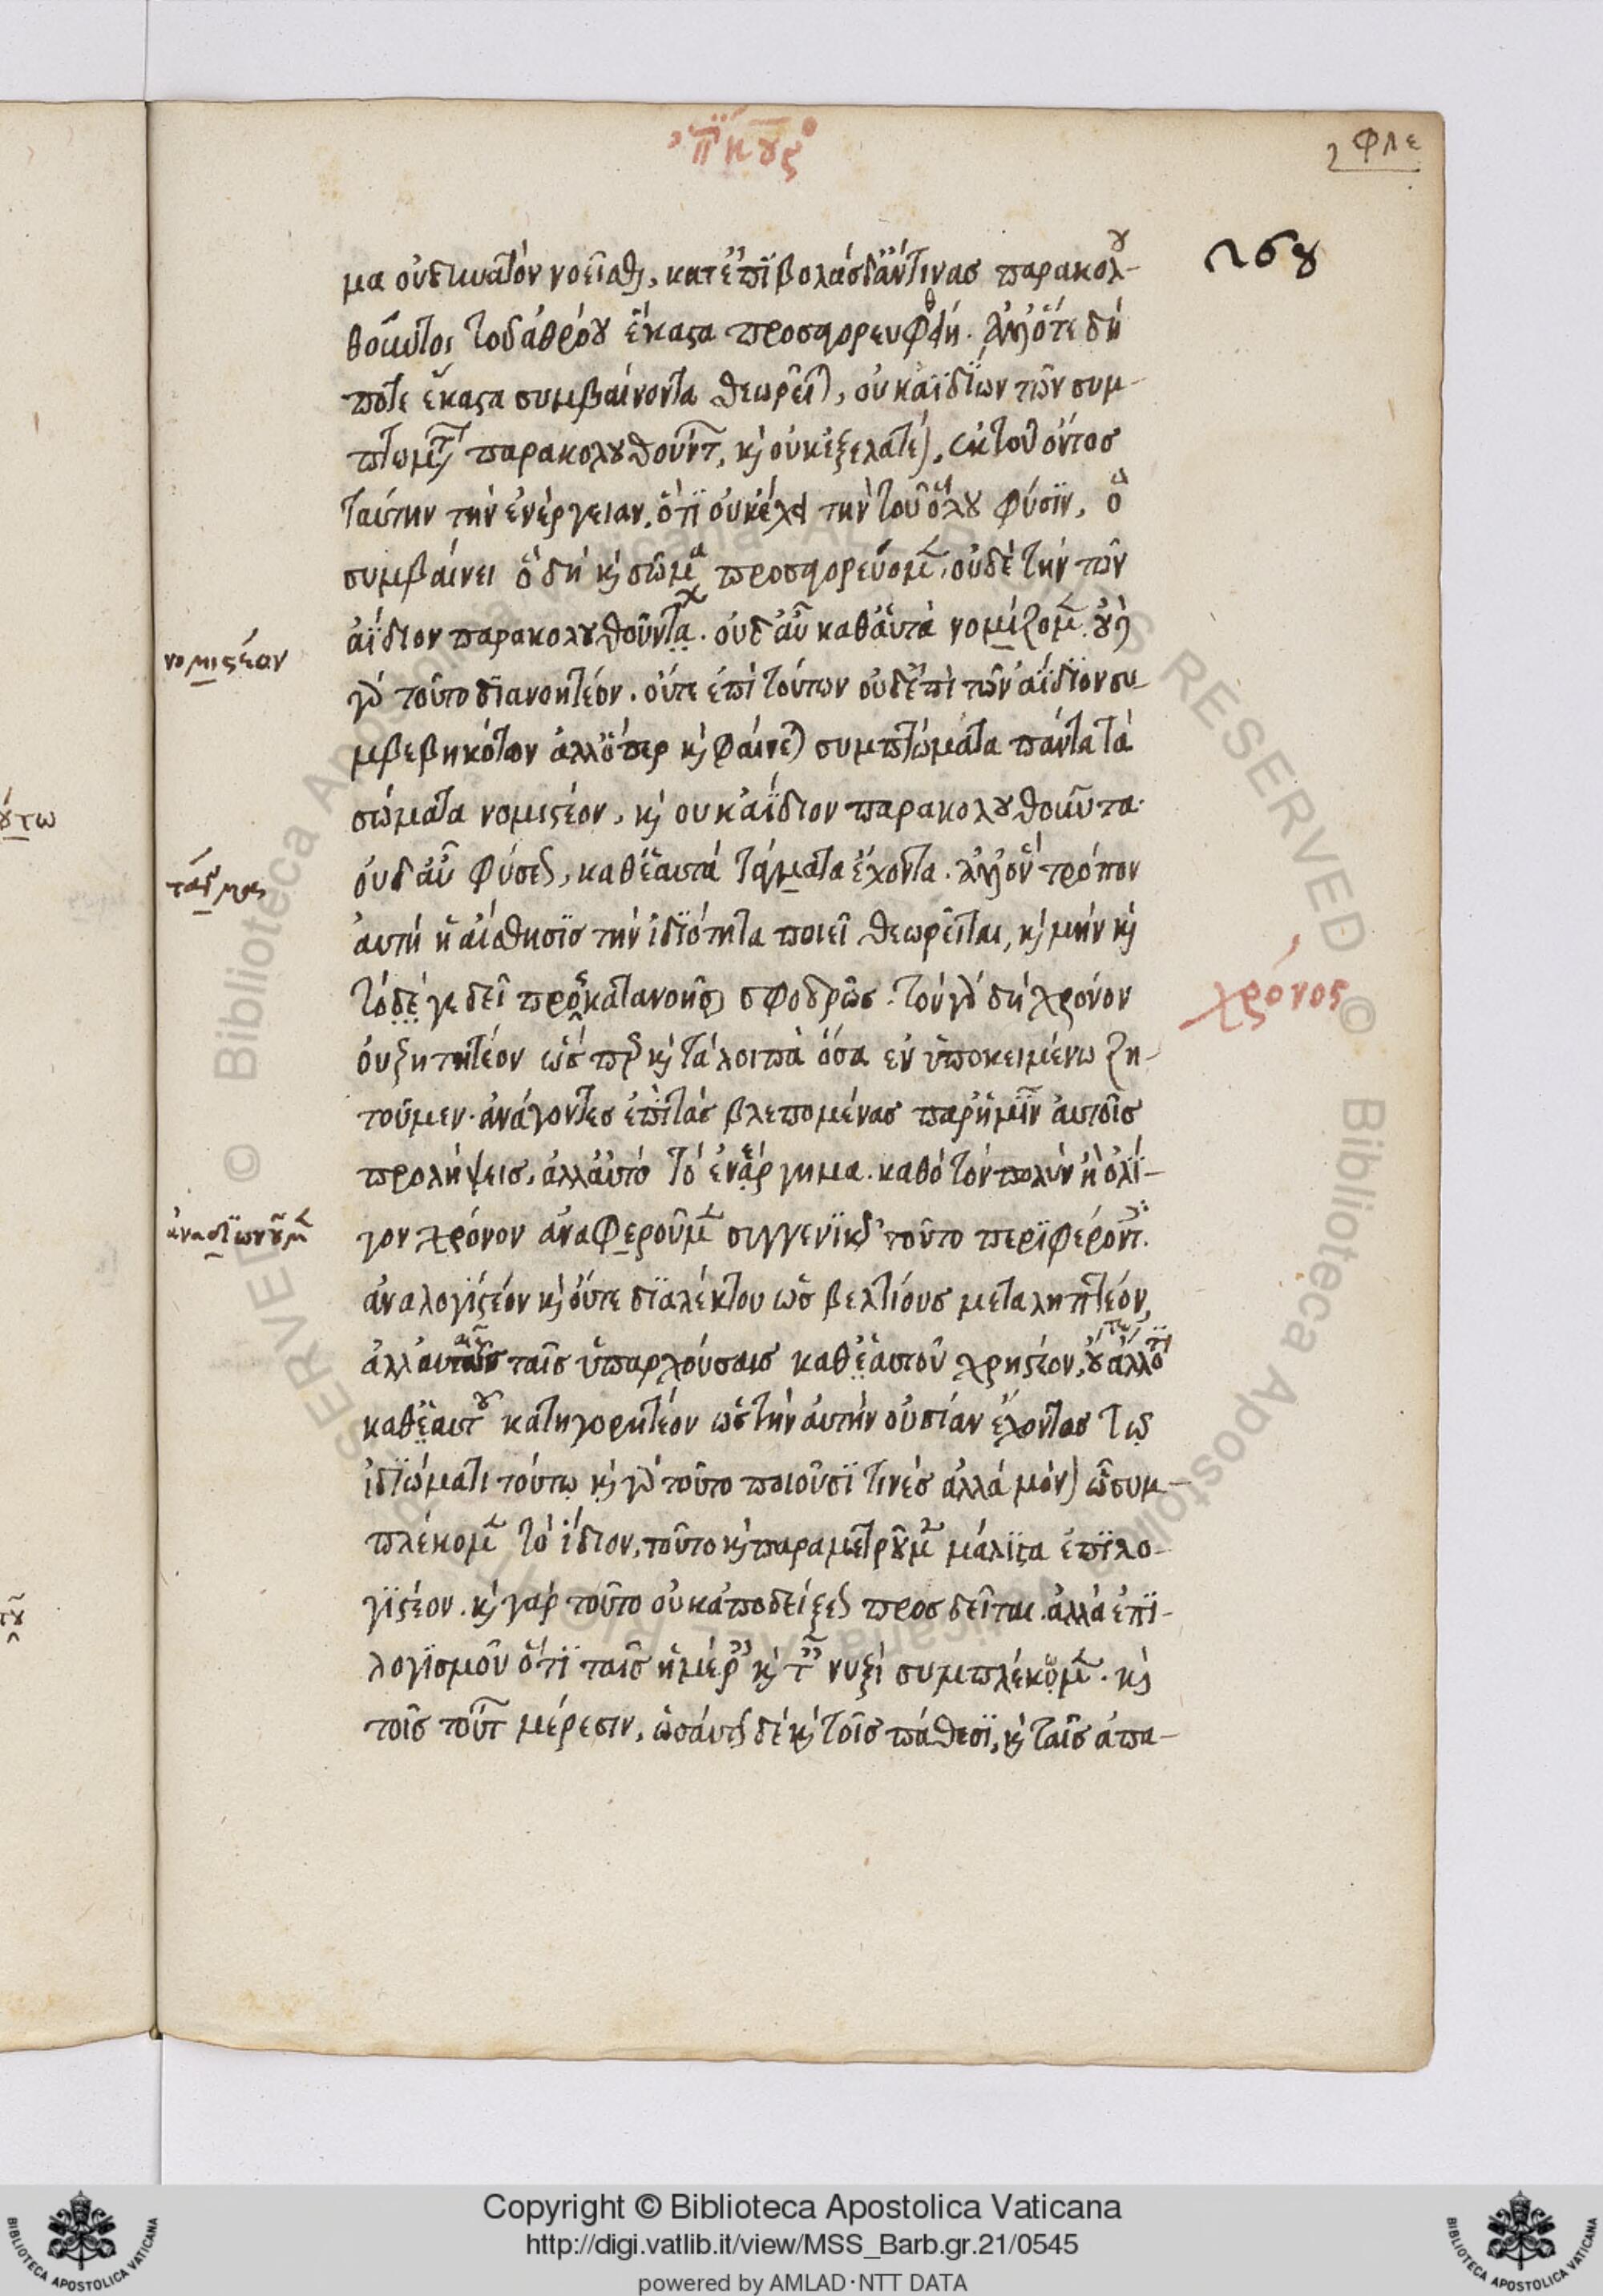 ἐπικουρος
φλε
268
μα οὐ δυνατὸν νοεῖσθαι, κατ' ἐπϊβολὰς δἄν τινας παρακολου-
θοῦντος τοῦ ἀθρόου ἕκαστα προσαγορευθείη. ἀλλ' ὅτε δή
ποτε ἕκαστα συμβαίνοντα θεωρεῖται, οὐκ ἀϊδίων τῶν συμ-
πτωμάτων παρακολουθούντων, καὶ οὐκ ἐξελατέον ἐκ τοῦ ὄντος
ταύτην τὴν ἐνέργειαν, ὅτι οὐκ ἔχει τὴν τοῦ ὅλου φύσιν, ᾧ
συμβαίνει ὃ δὴ καὶ σῶμα προσαγορεύομεν, οὐδὲ τὴν τῶν
ἀΐδιον παρακολουθούντων. οὐδ' αὖ καθ' αὑτὰ νομίζομεν. οὐδὲ
νομιστέον
γὰρ τοῦτο διανοητέον. οὔτε ἐπὶ τούτων οὐδ' ἐπὶ τῶν ἀΐδιον συ-
μβεβηκότων ἀλλ' ὅπερ καὶ φαίνεται συμπτώματα πάντα τὰ
σώματα νομιστέον, καὶ οὐκ ἀΐδιον παρακολουθοῦντα.
οὐδ' αὖ φύσεως, καθ' ἑαυτὰ τάγματα ἔχοντα. ἀλλ' ὃν τρόπον
αὐτὴ ἡ αἴσθησις τὴν ἰδιότητα ποιεῖ θεωρεῖται, καὶ μὴν καὶ
τόδε γε δεῖ προσκατανοῆσαι σφοδρῶς. τὸν γὰρ δὴ χρόνον
χρόνος
οὐ ζητητέον ὥσπερ καὶ τὰ λοιπὰ ὅσα ἐν ὑποκειμένω ζη-
τοῦμεν. ἀνάγοντες ἐπὶ τὰς βλεπομένας παρ' ἡμῖν αὐτοῖς
προλήψεις, ἀλλ' αὐτὸ τὸ ἐνάργημα. καθὸ τὸν πολὺν ἢ ὀλί-
γον χρόνον ἀναφεροῦμεν συγγενικῶς τοῦτο περιφέροντες.
ἀναλογιστέον καὶ οὔτε διαλέκτου ὡς βελτίους μεταληπτέον,
ἀλλ' αὐταῖς ταῖς ὑπαρχούσαις καθ' ἑαυτοῦ χρηστέον, οὔτε ἄλλό τι
καθ' ἑαυτοῦ κατηγορητέον ὡς τὴν αὐτὴν οὐσίαν ἔχοντος τῷ
ἰδιώματι τούτῳ καὶ γὰρ τοῦτο ποιοῦσι τινὲς ἀλλὰ μόνον ᾧ συμ-
πλέκομεν τὸ ἴδιον, τοῦτο καὶ παραμετροῦμεν μάλιστα ἐπιλο-
γιστέον. καὶ γὰρ τοῦτο οὐκ ἀποδείξεως προσδεῖται. ἀλλὰ ἐπι-
λογισμοῦ ὅτι ταῖς ἡμέραις καὶ ταῖς νυξὶ συμπλέκομεν. καὶ
τοῖς τούτων μέρεσιν, ὡσαύτως δὲ καὶ τοῖς πάθεσι, καὶ ταῖς ἀπα-
Copyright © Biblioteca Apostolica Vaticana
http://digi.vatlib.it/view/MSS_Barb.gr.21/0545
powered by AMLAD·NTT DATA